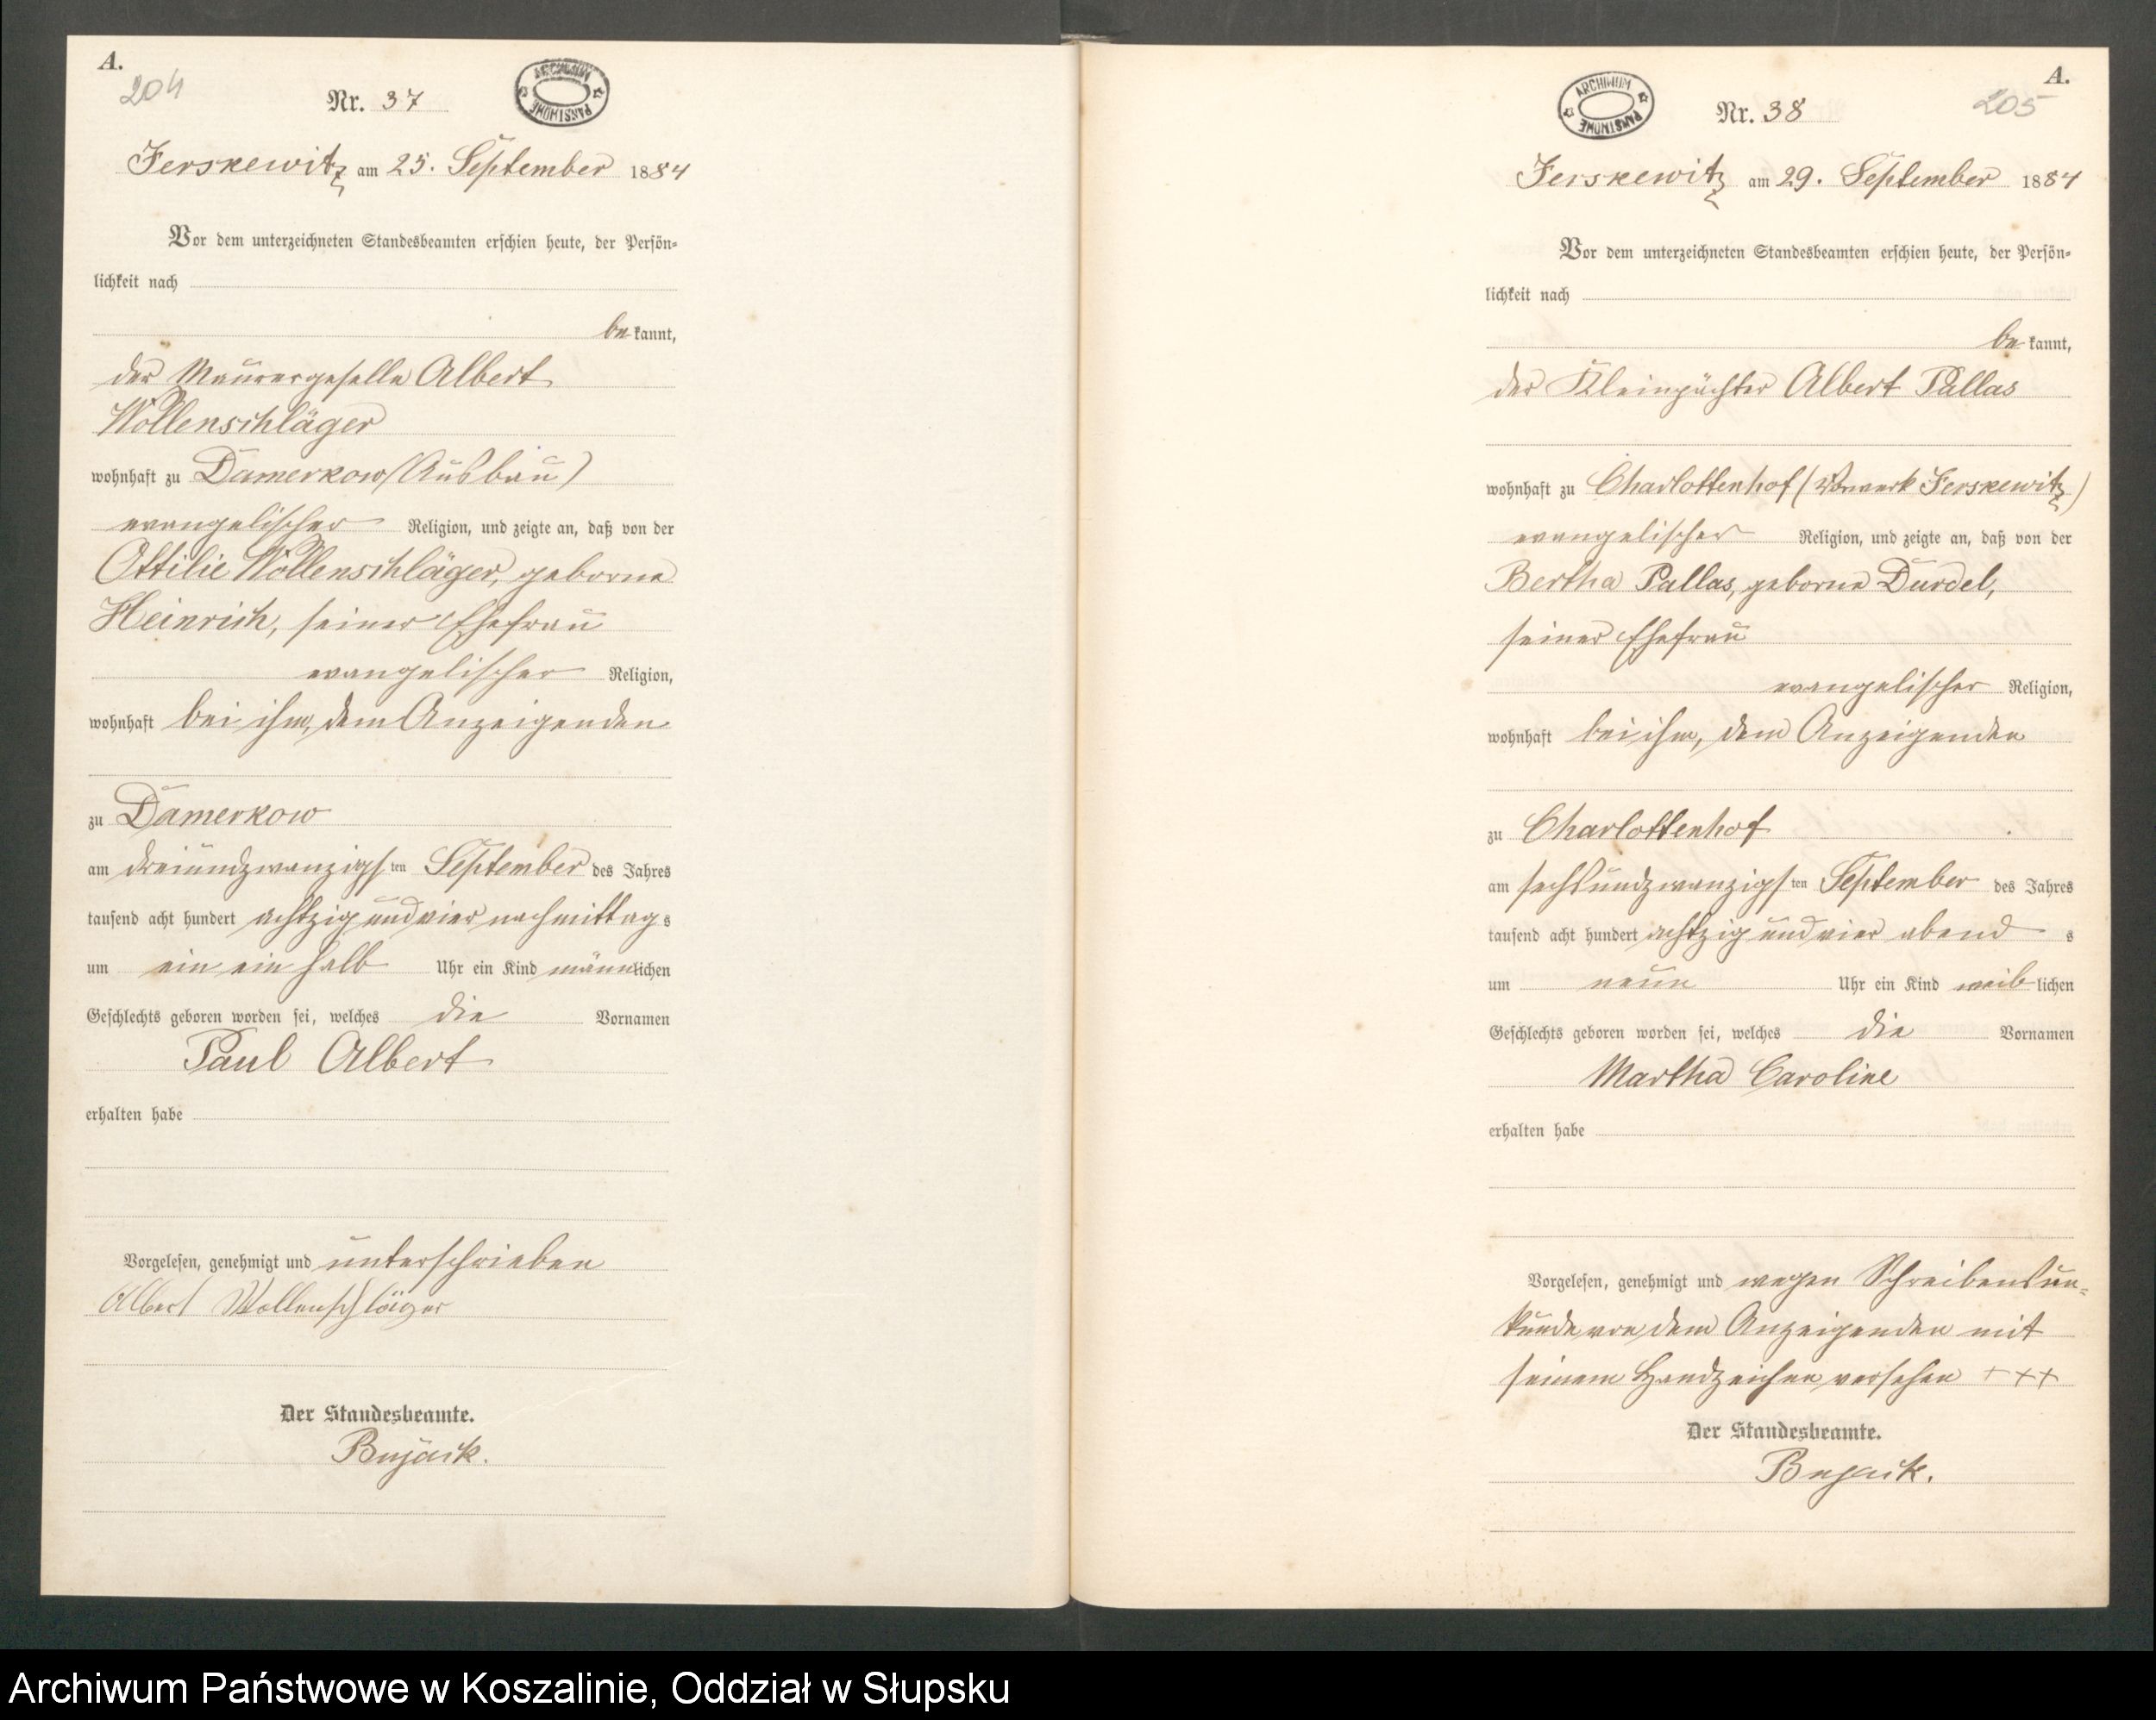 A.
204
Nr. 37
ARCHIWUM PAŃSTWOWE
Jerskewitz am 25. September 1884
Vor dem unterzeichneten Standesbeamten erschien heute, der Persön-
lichkeit nach
be kannt,
der Maurergeselle Albert
Wollenschläger
wohnhaft zu Damerkow (Ausbau)
evangelischer Religion, und zeigte an, daß von der
Ottilie Wollenschläger, geborne
Heinrich, seiner Ehefrau
evangelischer Religion,
wohnhaft bei ihm, dem Anzeigenden
zu Damerkow
am dreiundzwanzigsten September des Jahres
tausend acht hundert achtzig und vier nachmittags
um ein ein halb Uhr ein Kind männlichen
Geschlechts geboren worden sei, welches die Vornamen
Paul Albert
erhalten habe
Vorgelesen, genehmigt und unterschrieben
Albert Wollenschläger
Der Standesbeamte.
Bujack.
A.
205
Nr. 38
ARCHIWUM PAŃSTWOWE
Jerskewitz am 29. September 1884
Vor dem unterzeichneten Standesbeamten erschien heute, der Persön-
lichkeit nach
be kannt,
der Kleinpächter Albert Pallas
wohnhaft zu Charlottenhof (Vorwerk Jerskewitz)
evangelischer Religion, und zeigte an, daß von der
Bertha Pallas, geborne Durdel,
seiner Ehefrau
evangelischer Religion,
wohnhaft bei ihm, dem Anzeigenden
zu Charlottenhof
am sechsundzwanzigsten September des Jahres
tausend acht hundert achtzig und vier abends
um neun Uhr ein Kind weiblichen
Geschlechts geboren worden sei, welches die Vornamen
Martha Caroline
erhalten habe
Vorgelesen, genehmigt und wegen Schreibensun-
kunde von dem Anzeigenden mit
seinem Handzeichen versehen +++
Der Standesbeamte.
Bujack.
Archiwum Państwowe w Koszalinie, Oddział w Słupsku